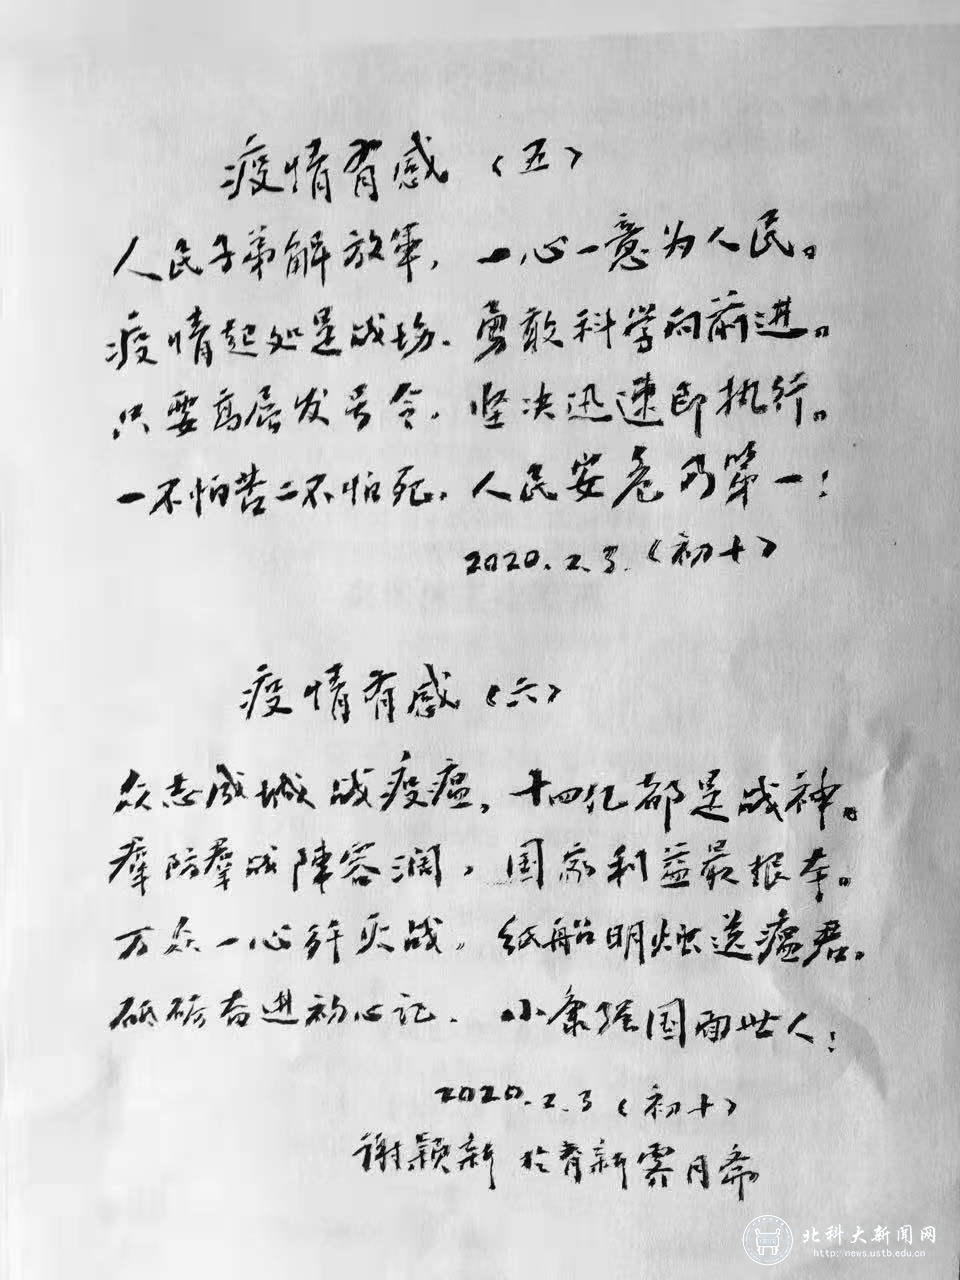 疫情有感（五）
人民子弟解放军，一心一意为人民。
疫情起处是战场，勇敢科学向前进。
只要高层发号令，坚决迅速即执行。
一不怕苦二不怕死，人民安危乃第一！
2020.2.3（初十）
疫情有感（六）
众志成城战疫瘟，十四亿都是战神。
群防群战陣容阔，国家利益最根本。
万众一心歼灭战，纸船明烛送瘟君。
砥砺奋进初心记，小康强国面世人！
2020.2.3（初十）
谢颖新 於育新霁月斋
北科大新闻网
http: news.ustb.edu.cn